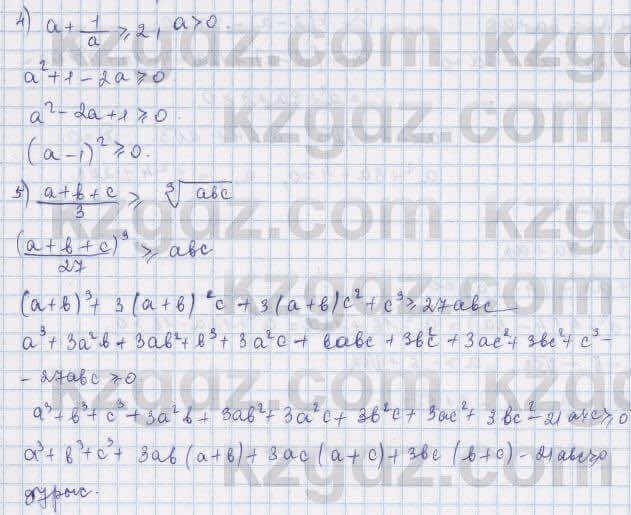 4) a + 1/a ⩾ 2, a > 0.
a² + 1 - 2a ⩾ 0
a² - 2a + 1 ⩾ 0.
(a - 1)² ⩾ 0.
5) (a + b + c)/3 ⩾ ∛abc
(a + b + c)³/27 ⩾ abc
(a + b)³ + 3(a + b)²c + 3(a + b)c² + c³ ⩾ 27abc
a³ + 3a²b + 3ab² + b³ + 3a²c + 6abc + 3b²c + 3ac² + 3bc² + c³ -
- 27abc ⩾ 0
a³ + b³ + c³ + 3a²b + 3ab² + 3a²c + 3b²c + 3ac² + 3bc² - 21abc ⩾ 0
a³ + b³ + c³ + 3ab(a + b) + 3ac(a + c) + 3bc(b + c) - 21abc ⩾ 0
дұрыс.
kzgdz.com